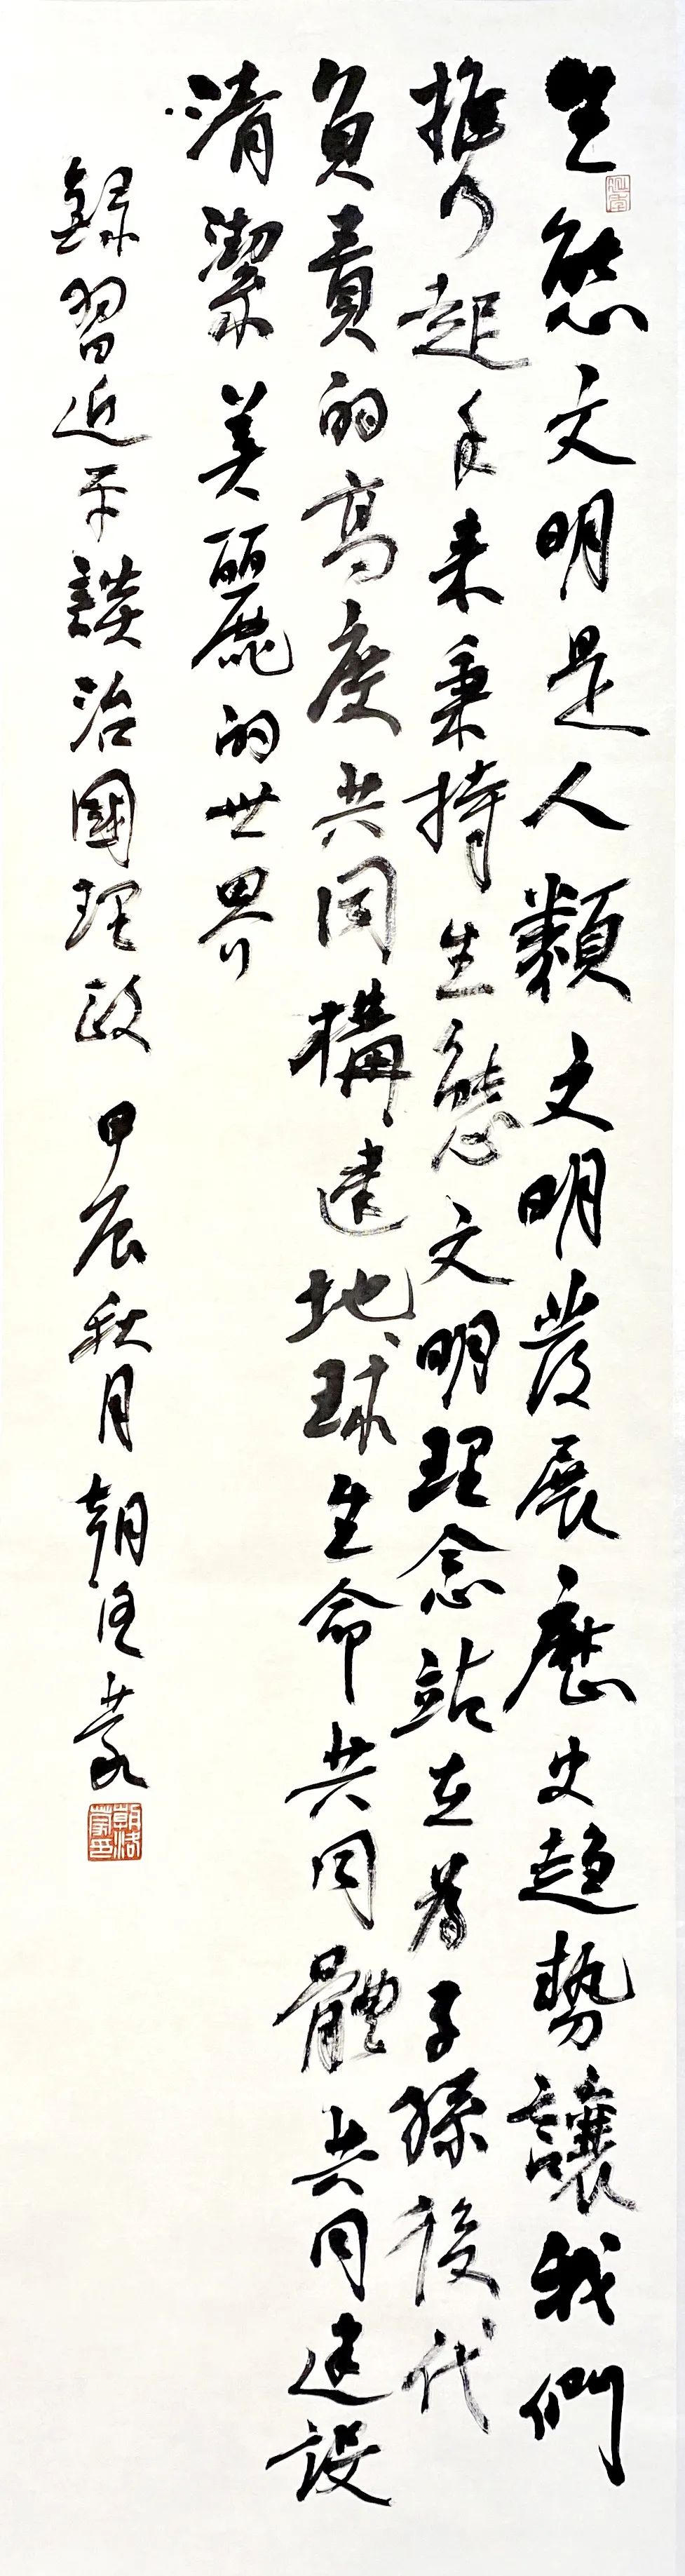 生態文明是人類文明發展歷史趨勢讓我們
攜起手來秉持生態文明理念站在為子孫後代
負責的高度共同構建地球生命共同體共同建設
清潔美麗的世界
錄習近平談治國理政 甲辰秋月 朝洛蒙
朝洛蒙印